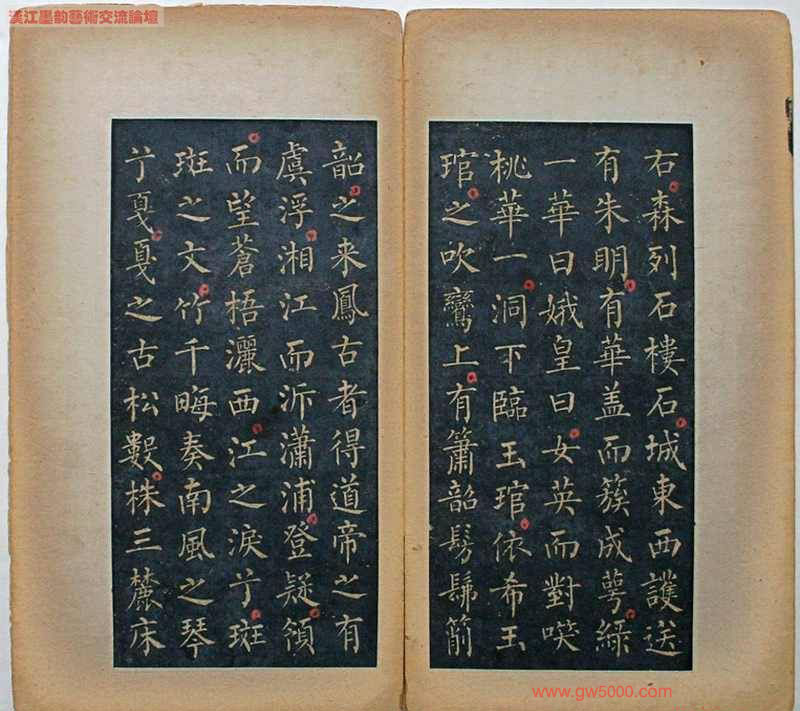 漢江墨韵藝術交流論壇
右森列石樓石城東西護送
有朱明有華盖而簇成萼綠
一華曰娥皇曰女英而對咲
桃華一洞下臨玉琯依希玉
琯之吹鸞上有簫韶髣髴箾
韶之来鳳古者得道帝之有
虞浮湘江而泝瀟浦登疑領
而望蒼梧灑西江之淚亍斑
斑之文竹千畮奏南風之琴
亍戛戛之古松數株三麓床
www.gw5000.com